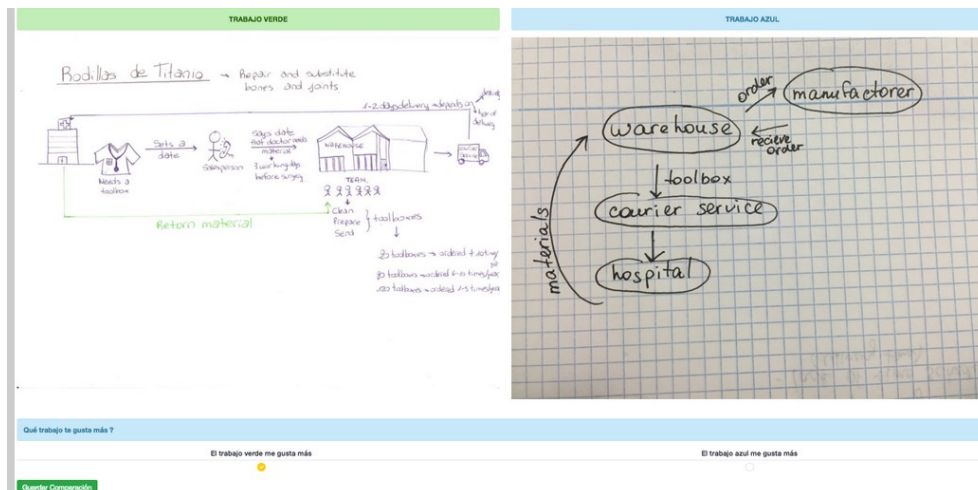 TRABAJO VERDE
TRABAJO AZUL
Rodillas de Titanio → Repair and substitute
bones and joints
1-2 days delivery → depends on
type of
delivery
Sets a
date
Needs a
toolbox
Salesperson
says date
that doctor needs
material
3 working days
before surgery
WAREHOUSE
TEAM
Clean
Prepare
Send
toolboxes
Return material
20 toolboxes → ordered
80 toolboxes → ordered 6-10 times/year
100 toolboxes → ordered 1-5 times/year
order
manufactorer
warehouse
recieve
order
toolbox
courier service
hospital
materials
Qué trabajo te gusta más ?
El trabajo verde me gusta más
El trabajo azul me gusta más
Guardar Comparación